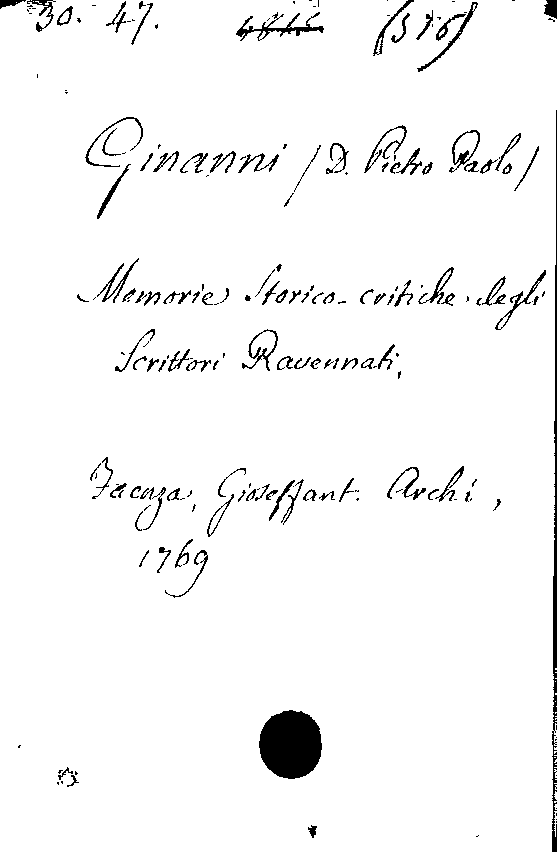 30. 47. 4815 (516)
Ginanni (D. Pietro Paolo)
Memorie Storico-critiche degli
Scrittori Ravennati,
Faenza, Gioseffant. Archi,
1769